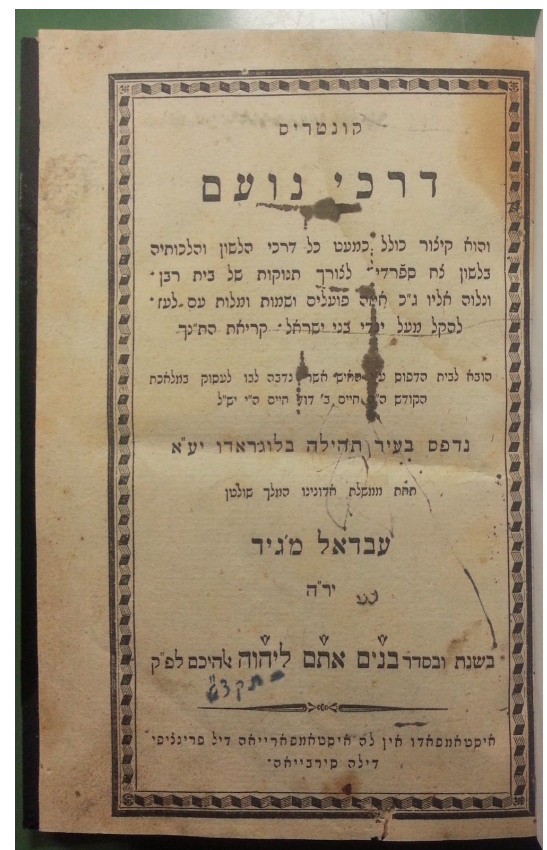 קונטריס
דרכי נועם
והוא קיצור כולל כמעט כל דרכי הלשון והלכותיה
בלשון צח ספרדי׳ לצורך תנוקות של בית רבן׳
ונלוה אליו ג״כ פועלים ושמות ומלות עם לעז׳
להקל מעל ילדי בני ישראל׳ קריאת התנ״ך
הובא לבית הדפוס האיש אשר נדבה לבו לעסוק במלאכת
הקודש חיים ב׳ דוד חיים הי״ו יש״ל
נדפס בעיר תהילה בלוגראדו יע״א
תחת ממשלת אדונינו המלך שולטן
עבדאל מ׳גיד
יר״ה
בשנת ובסדר בנים אתם ליהוה אלהיכם לפ״ק
איסטאמפאדו אין לה איסטאמפארייאה דיל פרינג׳יפי
דילה סירבייאה׳